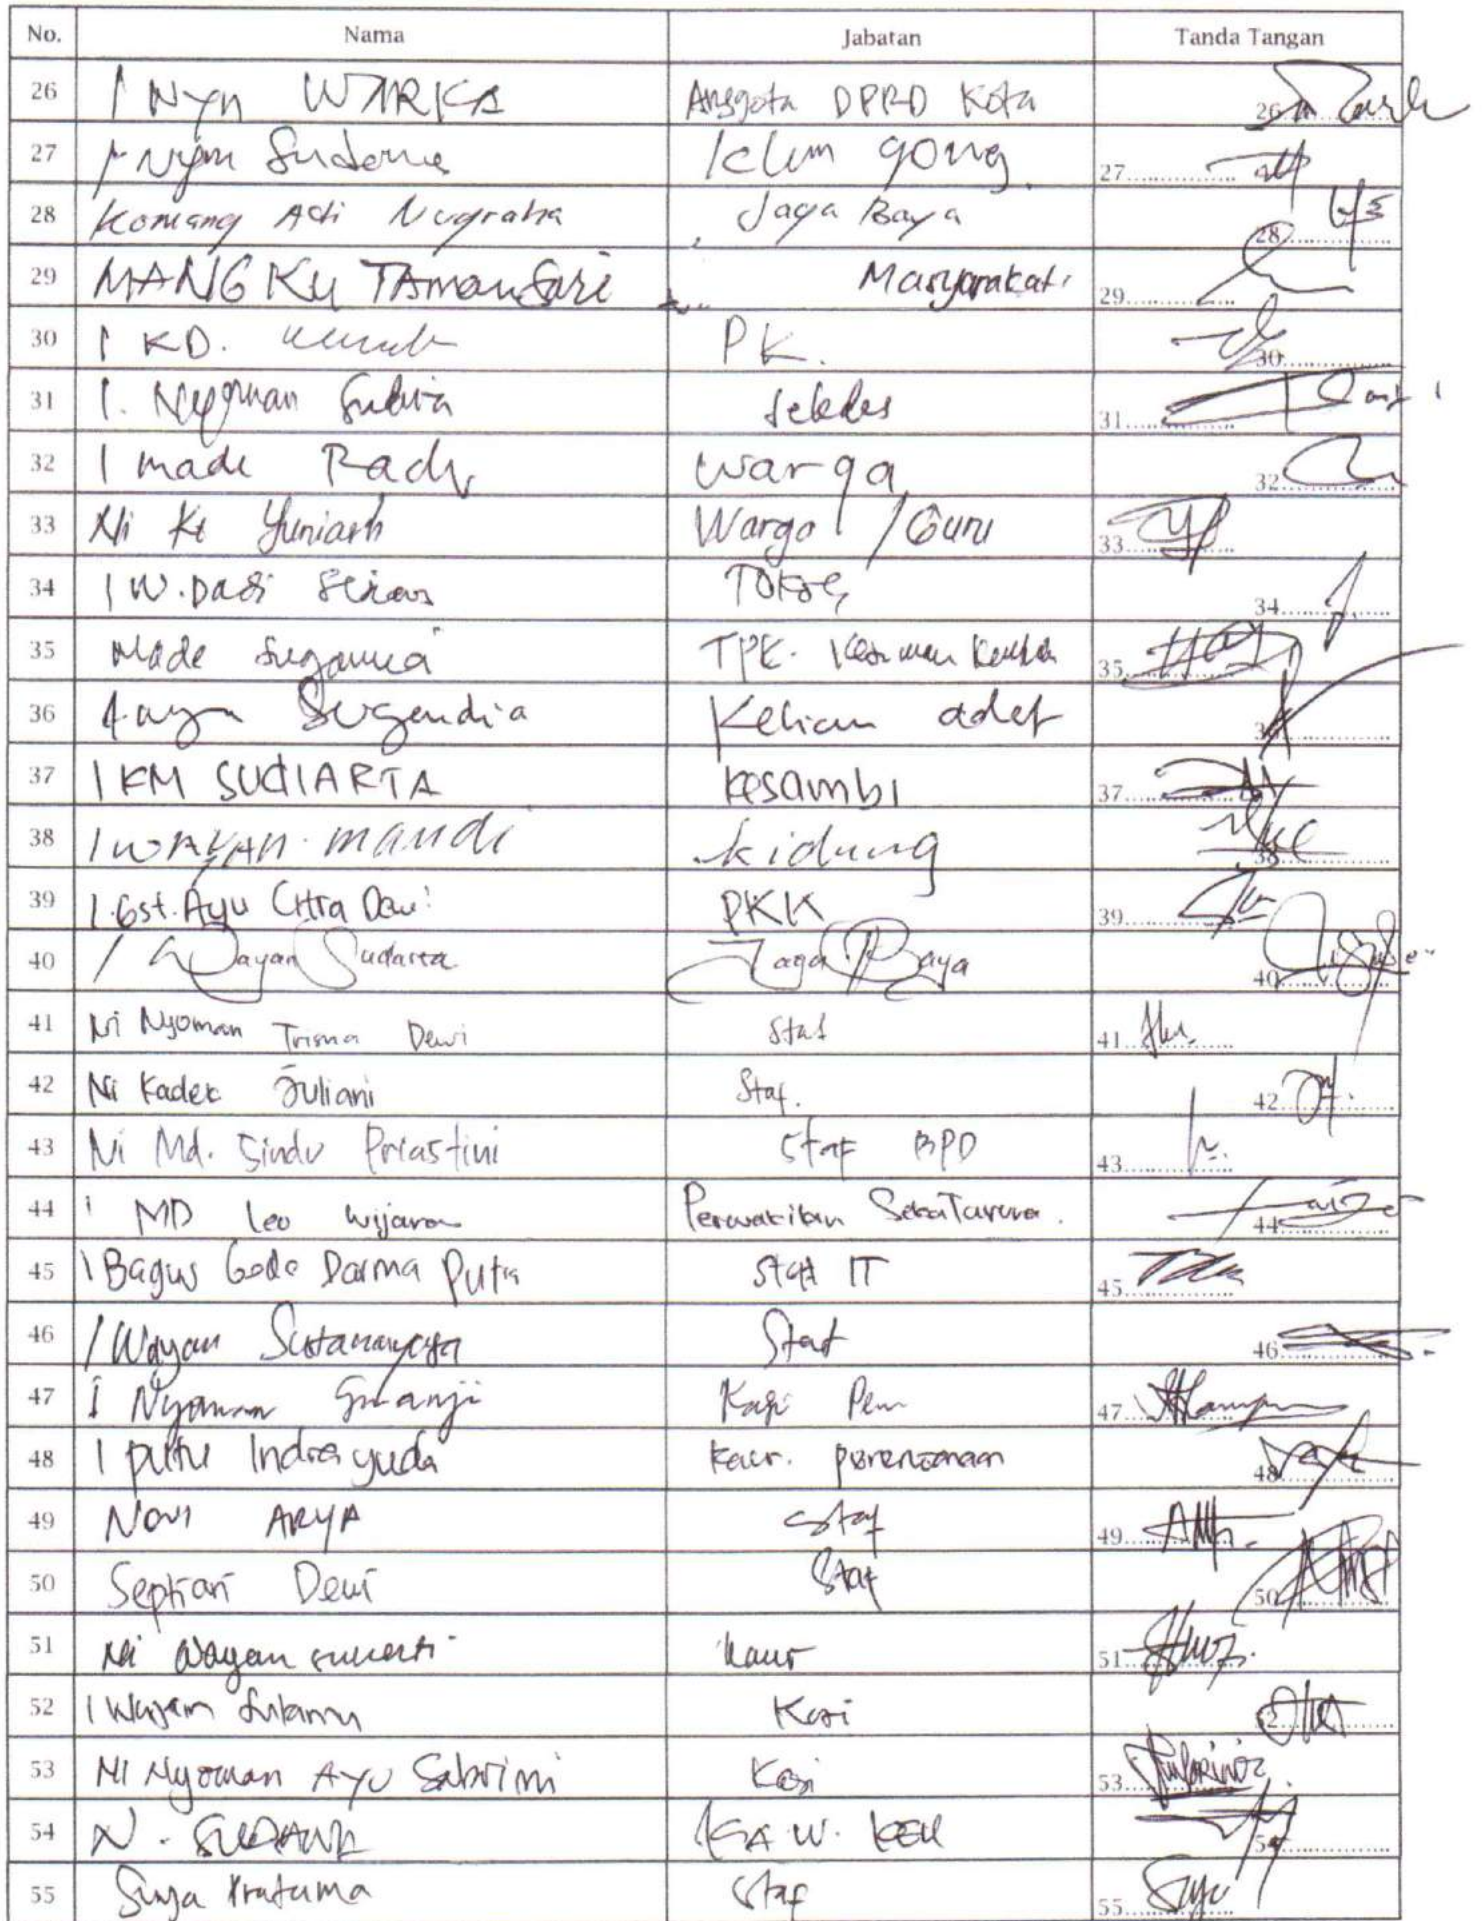 No. Nama Jabatan Tanda Tangan
26 I Nyn WARKA Anggota DPRD Kota 26
27 I Nym Sudana Klian gong 27
28 Komang Adi Nugraha Jaga Baya 28
29 MANGKU Tamansari Masyarakat 29
30 I KD. PK. 30
31 I. Nyoman Sekdes 31
32 I made Warga 32
33 Ni Kt Yuniarti Warga / Guru 33
34 I W. Dadi 34
35 Made TPK. 35
36 Sugendia Kelian adat
37 I KM SUDIARTA Kesambi 37
38 I WAYAN mandi kidung 38
39 I.Gst. Ayu Citra Dewi PKK 39
40 I Wayan Sudarta Jaga Baya 40
41 Ni Nyoman Trisna Dewi Staf 41
42 Ni Kadek Juliani Staf. 42
43 Ni Md. Sindu Priastini Staf BPD 43
44 I MD Leo Wijaya Perwakilan Seka Taruna. 44
45 I Bagus Gede Darma Putra Staf IT 45
46 I Wayan Staf 46
47 I Nyoman Kasi Pem 47
48 I putu Indrayuda Kaur. perencanaan 48
49 Novi ARYA Staf 49
50 Septiari Dewi Staf 50
51 Ni Wayan sukerti Kaur 51
52 I Wayan Kasi 52
53 NI Nyoman AYU Sabrini Kasi 53
54 N. SUDANA KA.W. 54
55 Surya Pratama Staf 55